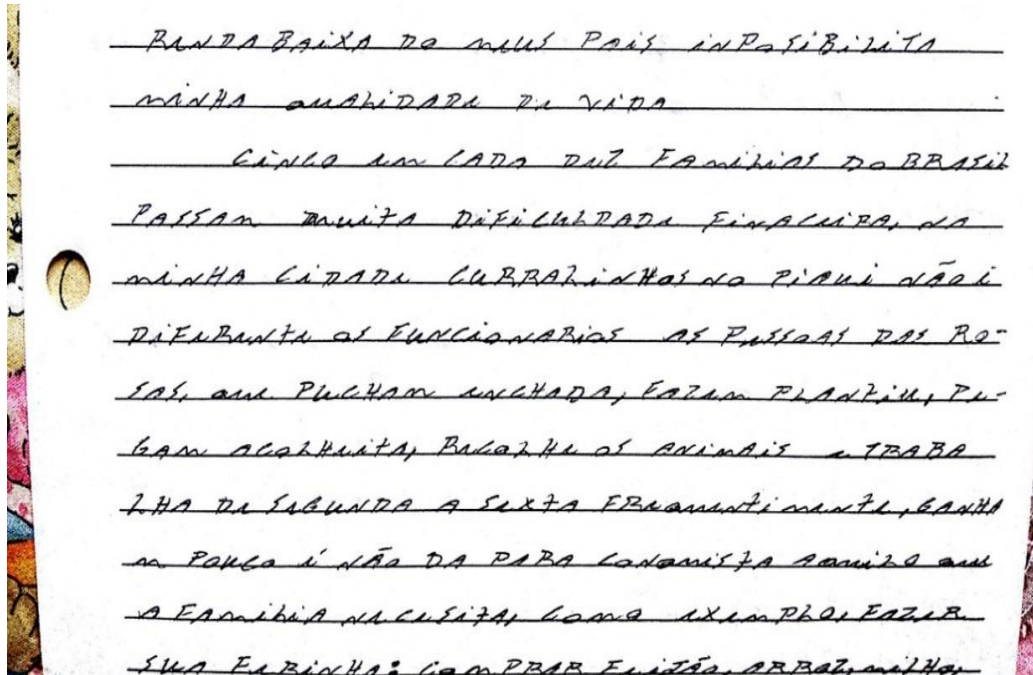 RENDA BAIXA DO MEUS PAIS INPOSIBILITA
MINHA QUALIDADE DE VIDA
CINCO EM CADA DEZ FAMILIAS DO BRASIL
PASSAM MUITA DIFICULDADE FINACEIRA, NA
MINHA CIDADE CURRALINHOS NO PIAUI NÃO É
DIFERENTE OS FUNCIONARIOS AS PESSOAS DAS RO-
SAS, QUE PUCHAM ENCHADA, FAZEM PLANTIU, PE-
GAM ACOLHEITA, RECOLHE OS ANIMAIS E TRABA
LHA DE SEGUNDA A SEXTA FREQUENTIMENTE, GANHA
M POUCO É NÃO DA PARA CONQUISTA AQUILO QUE
A FAMILIA NECESITA, COMO EXEMPLO, FAZER
SUA FEIRINHA: COMPRAR FEIJÃO, ARROZ, MILHO,